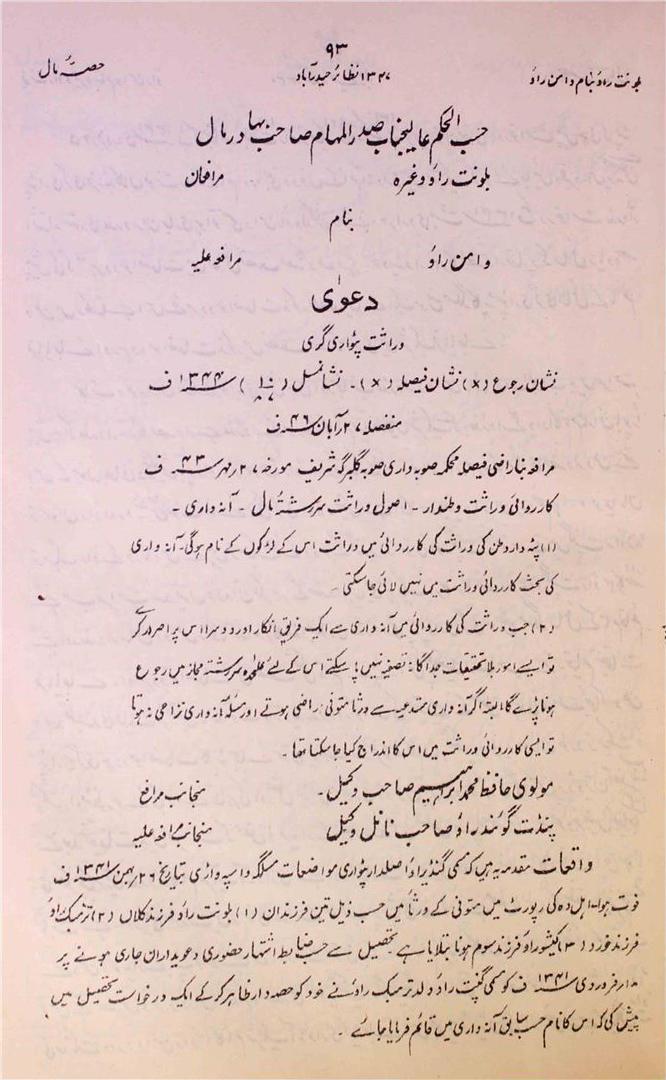 ۹۳
بلونت راؤ بنام وامن راؤ ۱۳۴۷ نظائر حیدرآباد حصہ مال
حسب الحکم عالیجناب صدر المہام صاحب بہادر مال
بلونت راؤ وغیرہ مرافعان
بنام
وامن راؤ مرافعہ علیہ
دعویٰ
وراثت پٹواری گری
نشان رجوع (×) نشان فیصلہ (×)۔ نشانمسل (۱۰/۸۷) ۱۳۴۴ ف
منفصلہ ۲۷ آبان ۴۶ ف
مرافعہ بناراضی فیصلہ محکمہ صوبہ داری صوبہ گلبرگہ شریف مورخہ ۲۷ مہر ۴۳ ف
کارروائی وراثت وطندار ۔ اصول وراثت سررشتہ مال ۔ آنہ داری ۔
(۱) پٹہ دار وطن کی وراثت کی کارروائی میں وراثت اس کے لڑکوں کے نام ہوگی۔ آنہ واری
کی بحث کارروائی وراثت میں نہیں لائی جاسکتی ۔
(۲) جب وراثت کی کارروائی میں آنہ واری سے ایک فریق انکار اور دوسرا اس پر اصرار کرے
تو ایسے امور بلا تحقیقات جداگانہ تصفیہ نہیں پاسکتے اس کے لئے علحٰدہ سررشتہ مجاز میں رجوع
ہونا پڑے گا البتہ اگر آنہ داری متدعیہ سے ورثا متوفی راضی ہوتے اور مسئلہ آنہ داری نزاعی نہ ہوتا
تو ایسی کارروائی وراثت میں اس کا اندراج کیا جاسکتا تھا ۔
مولوی حافظ محمد ابراہیم صاحب وکیل ۔ منجانب مرافع
پنڈت گوبند راؤ صاحب نانل وکیل منجانب مرافعہ علیہ
واقعات مقدمہ یہ ہیں کہ مسمی گنڈیراؤ اصلدار پٹواری مواضعات مسلگہ واسپہ واڑی بتاریخ ۲۶ بہمن ۱۳۴۱ ف
فوت ہوا۔ اہل دہ کی رپورٹ میں متوفی کے ورثا میں حسب ذیل تین فرزندان (۱) بلونت راؤ فرزند کلاں (۲) ترمبک راؤ
فرزند خورد (۳) کیشو راؤ فرزند سوم ہونا بتلایا ہے تحصیل سے حسب ضابطہ اشتہار حضوری دعویداران جاری ہونے پر
۱۰ ار فروردی ۱۳۴۱ ف کو مسمی گنپت راؤ ولد ترمبک راؤ نے خود کو حصہ دار ظاہر کرکے ایک درخواست تحصیل میں
پیش کی کہ اس کا نام حسب سابق آنہ داری میں قائم فرمایا جائے ۔